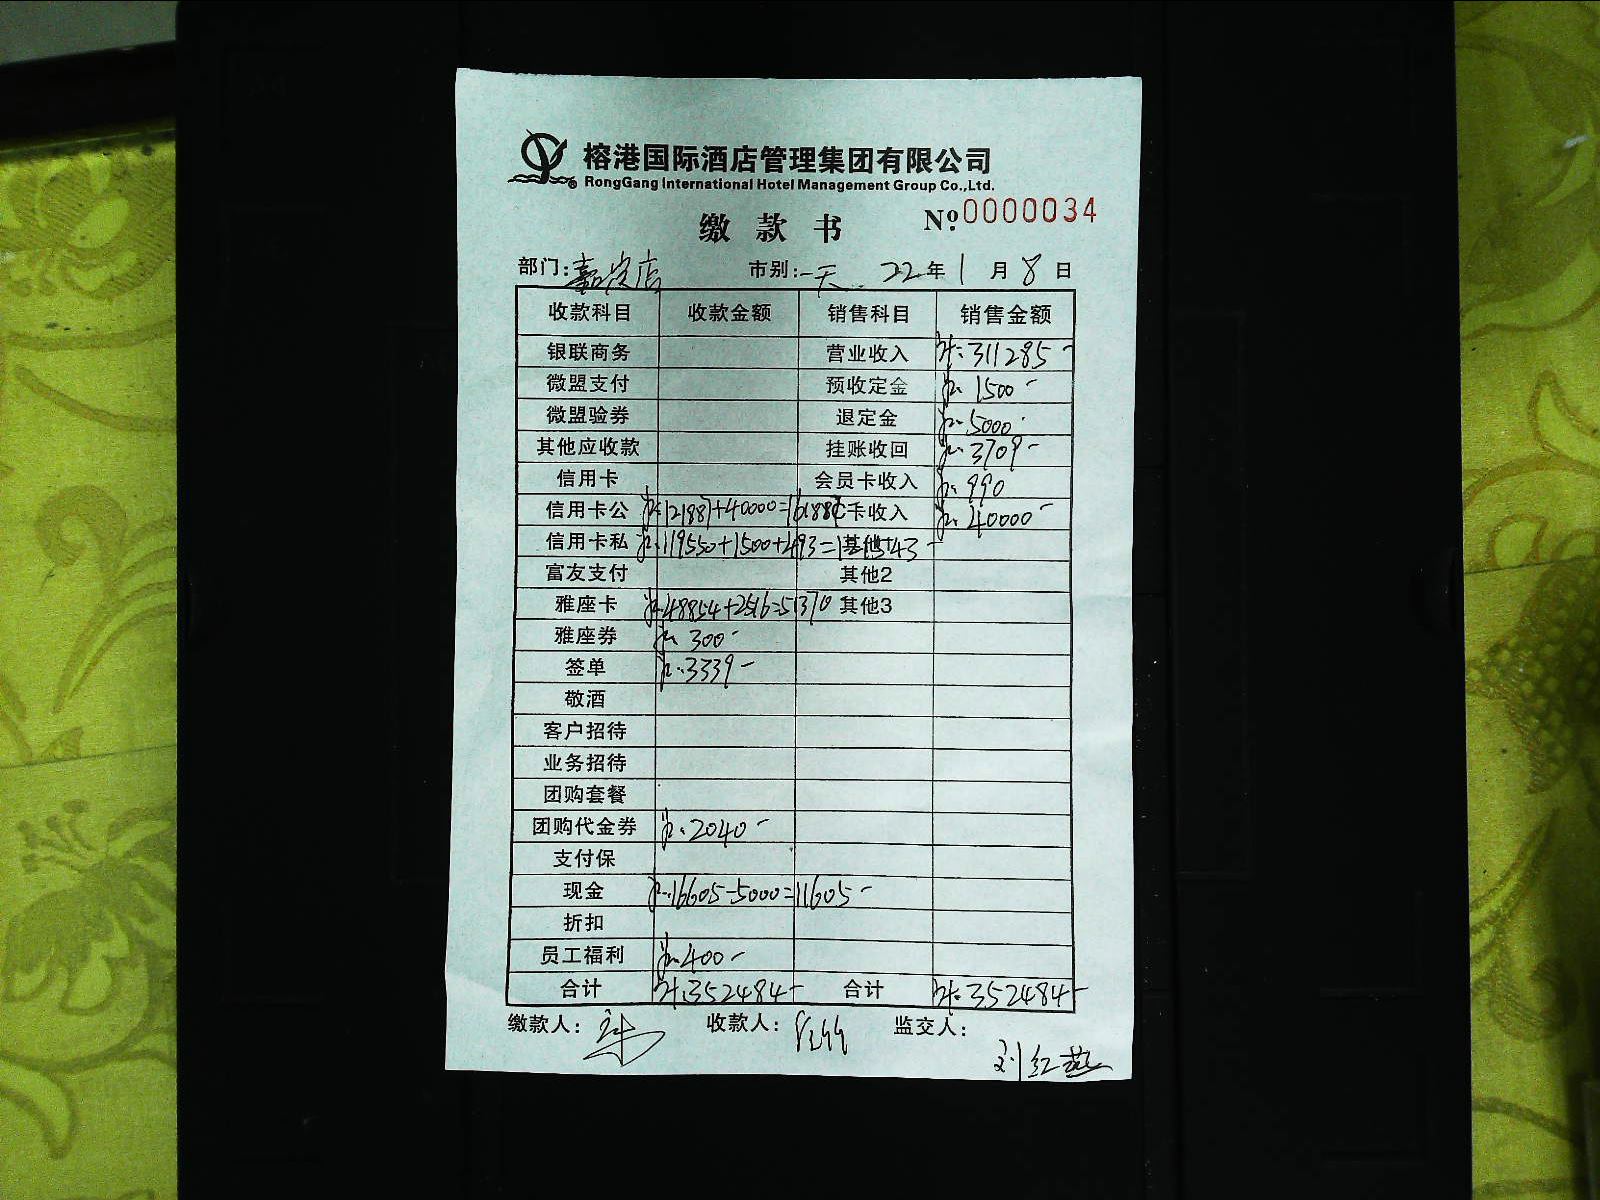 榕港国际酒店管理集团有限公司
RongGang International Hotel Management Group Co.,Ltd.
缴款书 Nº:0000034
部门:嘉定店 市别:一天 22年1月8日
收款科目 收款金额 销售科目 销售金额
银联商务 营业收入 311285-
微盟支付 预收定金 1500-
微盟验券 退定金 5000-
其他应收款 挂账收回 3709-
信用卡 会员卡收入 990
信用卡公 121887+40000=161887 C卡收入 40000-
信用卡私 119550+1500+493=121543- 其他1
富友支付 其他2
雅座卡 48854+2516=51370 其他3
雅座券 300-
签单 3339-
敬酒
客户招待
业务招待
团购套餐
团购代金券 2040-
支付保
现金 16605-5000=11605-
折扣
员工福利 400-
合计 352484- 合计 352484-
缴款人: 收款人: 监交人:
刘红燕